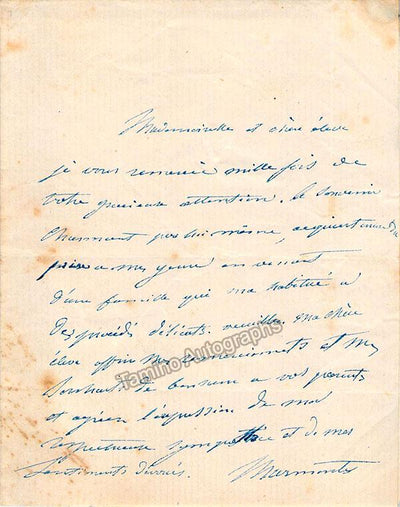 Mademoiselle et chère élève
je vous remercie mille fois de
votre gracieuse attention. le souvenir
charmant par lui même, acquiert une
prix a mes yeux en venant
d'une famille qui m'a habitué a
des procédés délicats. veuillez ma chère
élève offrir mes remerciements et mes
souhaits de bonheur a vos parents
et agréer l'expression de ma
respectueuse sympathie et de mes
Sentiments dévoués. Marmontel
Tamino Autographs